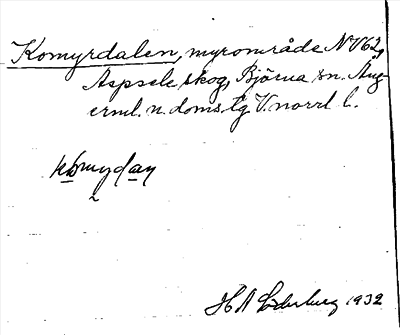 Komyrdalen, myrområde NV62,
Aspsele skog, Björna sn. Ång-
erml. n. doms. tg V. norrl l.
kọmydạn
H A Söderberg 1932